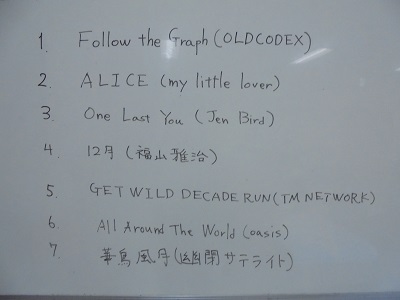 1. Follow the Graph (OLDCODEX)
2. ALICE (my little lover)
3. One Last You (Jen Bird)
4. 12月 (福山雅治)
5. GET WILD DECADE RUN (TM NETWORK)
6. All Around The World (oasis)
7. 華鳥風月 (幽閉サテライト)